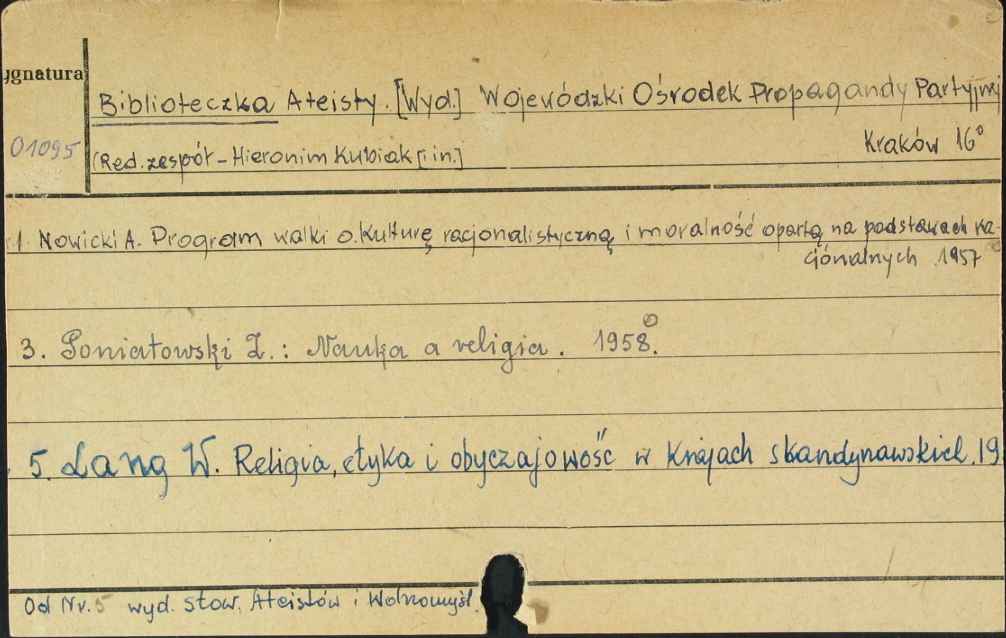 ygnatura
Biblioteczka Ateisty. [Wyd.] Wojewódzki Ośrodek Propagandy Partyjnej
01095
Kraków 16°
(Red. zespół - Hieronim Kubiak [i in.]
1. Nowicki A. Program walki o kulturę racjonalistyczną i moralność opartą na podstawach ra-
cjonalnych 1957
3. Poniatowski Z.: Nauka a religia. 1958.
5. Lang W. Religia, etyka i obyczajowość w Krajach skandynawskich. 19
Od Nr. 5 wyd. Stow. Ateistów i Wolnomyśl.